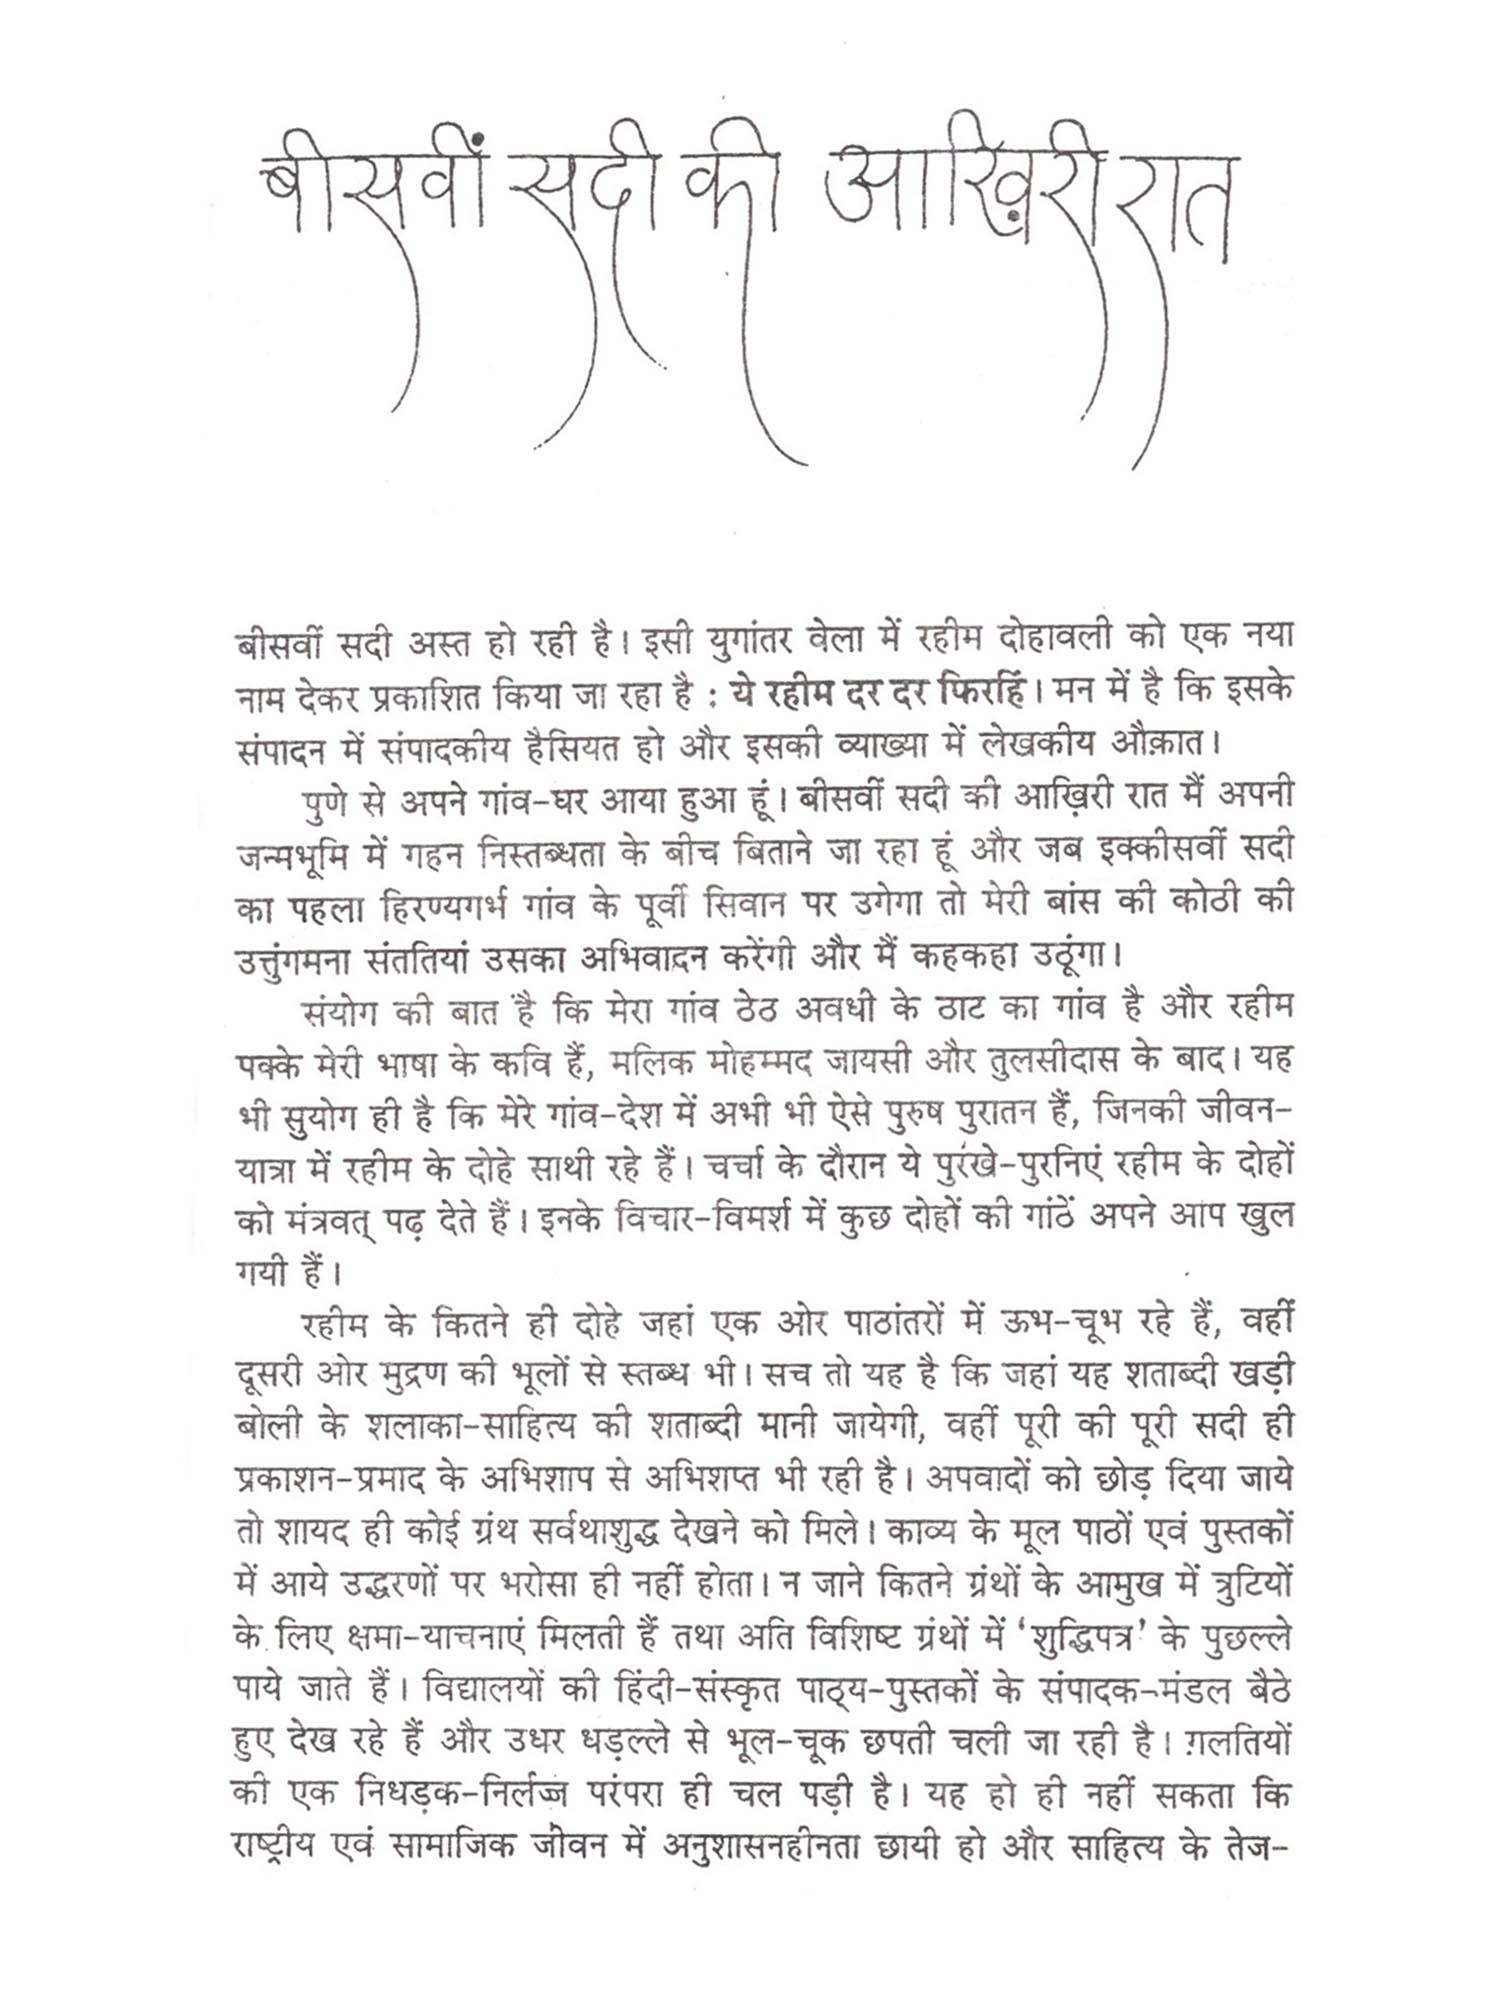 बीसवीं सदी की आख़िरी रात
बीसवीं सदी अस्त हो रही है। इसी युगांतर वेला में रहीम दोहावली को एक नया
नाम देकर प्रकाशित किया जा रहा है : ये रहीम दर दर फिरहिं। मन में है कि इसके
संपादन में संपादकीय हैसियत हो और इसकी व्याख्या में लेखकीय औक़ात।
पुणे से अपने गांव-घर आया हुआ हूं। बीसवीं सदी की आख़िरी रात मैं अपनी
जन्मभूमि में गहन निस्तब्धता के बीच बिताने जा रहा हूं और जब इक्कीसवीं सदी
का पहला हिरण्यगर्भ गांव के पूर्वी सिवान पर उगेगा तो मेरी बांस की कोठी की
उत्तुंगमना संततियां उसका अभिवादन करेंगी और मैं कहकहा उठूंगा।
संयोग की बात है कि मेरा गांव ठेठ अवधी के ठाट का गांव है और रहीम
पक्के मेरी भाषा के कवि हैं, मलिक मोहम्मद जायसी और तुलसीदास के बाद। यह
भी सुयोग ही है कि मेरे गांव-देश में अभी भी ऐसे पुरुष पुरातन हैं, जिनकी जीवन-
यात्रा में रहीम के दोहे साथी रहे हैं। चर्चा के दौरान ये पुरखे-पुरनिएं रहीम के दोहों
को मंत्रवत् पढ़ देते हैं। इनके विचार-विमर्श में कुछ दोहों की गांठें अपने आप खुल
गयी हैं।
रहीम के कितने ही दोहे जहां एक ओर पाठांतरों में ऊभ-चूभ रहे हैं, वहीं
दूसरी ओर मुद्रण की भूलों से स्तब्ध भी। सच तो यह है कि जहां यह शताब्दी खड़ी
बोली के शलाका-साहित्य की शताब्दी मानी जायेगी, वहीं पूरी की पूरी सदी ही
प्रकाशन-प्रमाद के अभिशाप से अभिशप्त भी रही है। अपवादों को छोड़ दिया जाये
तो शायद ही कोई ग्रंथ सर्वथाशुद्ध देखने को मिले। काव्य के मूल पाठों एवं पुस्तकों
में आये उद्धरणों पर भरोसा ही नहीं होता। न जाने कितने ग्रंथों के आमुख में त्रुटियों
के लिए क्षमा-याचनाएं मिलती हैं तथा अति विशिष्ट ग्रंथों में ‘शुद्धिपत्र’ के पुछल्ले
पाये जाते हैं। विद्यालयों की हिंदी-संस्कृत पाठ्य-पुस्तकों के संपादक-मंडल बैठे
हुए देख रहे हैं और उधर धड़ल्ले से भूल-चूक छपती चली जा रही है। ग़लतियों
की एक निधड़क-निर्लज्ज परंपरा ही चल पड़ी है। यह हो ही नहीं सकता कि
राष्ट्रीय एवं सामाजिक जीवन में अनुशासनहीनता छायी हो और साहित्य के तेज-